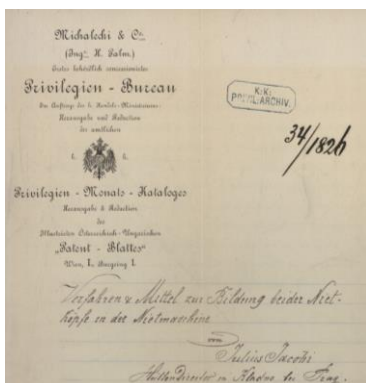 Michalecki & Co.
(Ingr. H. Palm.)
Erstes behördlich concessionirtes
Privilegien - Bureau
Im Auftrage des k. Handels-Ministeriums:
Herausgabe und Redaction
der amtlichen
K.K.
PRIVIL. ARCHIV.
34/1826
k. k.
Privilegien - Monats - Kataloges
Herausgabe & Redaction
des
Illustrirten Österreichisch-Ungarischen
„Patent - Blattes"
Wien, I., Burgring 1.
Verfahren & Mittel zur Bildung beider Niet-
köpfe in der Nietmaschine
von
Julius Jacobi
Hüttendirector in Kladno bei Prag.